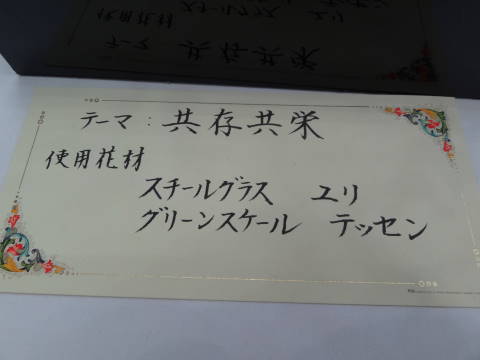 テーマ：共存共栄
使用花材
スチールグラス　ユリ
グリーンスケール　テッセン